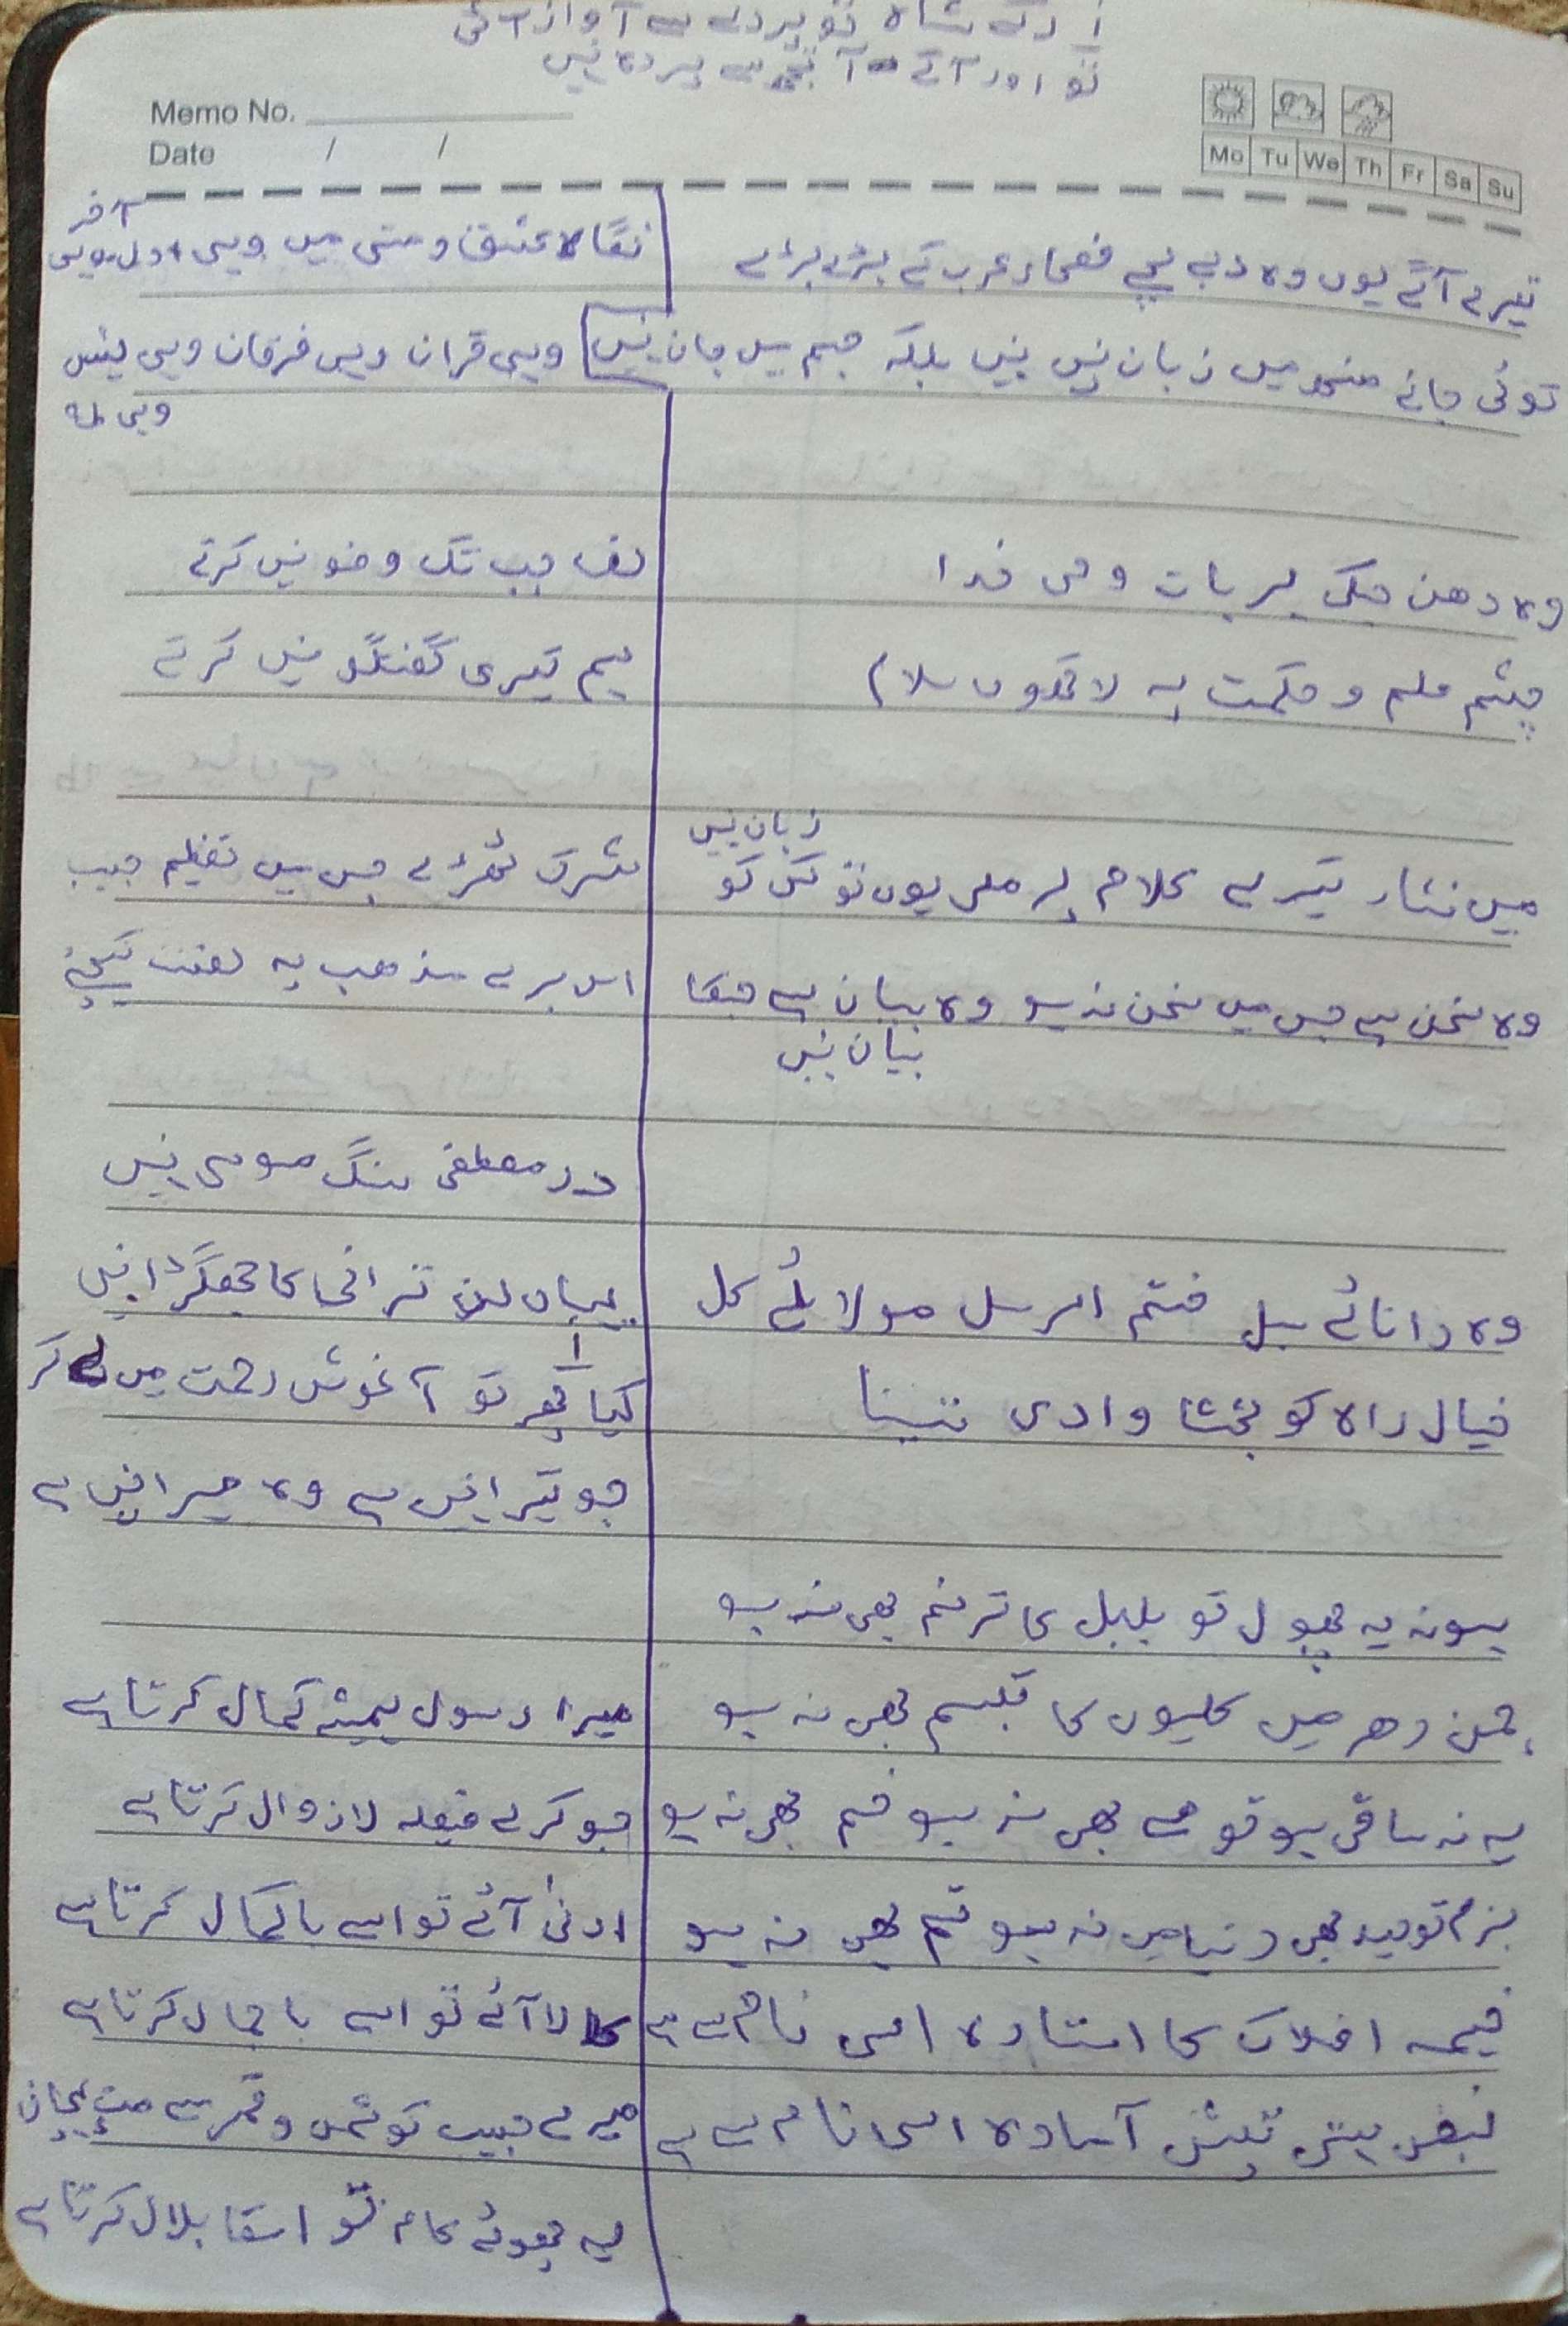 رکے شاہ تو پردے سے آواز آئی
تو اور آگے آ تجھ سے پردہ نہیں
Memo No.
Date / /
Mo Tu We Th Fr Sa Su
تیرے آگے یوں وہ دبے لچے فصحاء عرب کے بڑے بڑے
کوئی جانے منھ میں زبان نہیں نہیں بلکہ جسم میں جان نہیں
وہ دھن جسکی ہر بات وحی خدا
چشم علم و حکمت پہ لاکھوں سلام
زبان نہیں
میں نثار تیرے کلام پر ملی یوں تو کس کو
وہ سخن ہے جس میں سخن نہ ہو وہ بیان ہے جسکا
بیان نہیں
وہ دانائے سبل ختم الرسل مولائے کل
خیال راہ کو بخشا وادی سینا
ہو نہ یہ پھول تو بلبل کا ترنم بھی نہ ہو
چمن دھر میں کلیوں کا تبسم بھی نہ ہو
یہ نہ ساقی ہو تو مے بھی نہ ہو خم بھی نہ ہو
بزم توحید بھی دنیا میں نہ ہو تم بھی نہ ہو
خیمہ افلاک کا استادہ اسی نام سے ہے
نبض ہستی تپش آمادہ اسی نام سے ہے
آخر
نگاہ عشق و مستی میں وہی اول وہی
وہی قران وہی فرقان وہی یٰس
وہی طہ
لب جب تک وضو نہیں کرتے
ہم تیری گفتگو نہیں کرتے
شرک ٹھرے جس میں تعظیم حبیب
اس برے مذھب پہ لعنت کیجئے
در مصطفی سنگ موسی نہیں
یہاں لن ترانی کا جھگڑا نہیں
کیا پھر تو آغوش رحمت میں لے کر
جو تیرا نہیں ہے وہ میرا نہیں ہے
میرا رسول ہمیشہ کمال کرتا ہے
جو کرے فیصلہ لازوال کرتا ہے
ادنیٰ آئے تو اسے باکمال کرتا ہے
کالا آئے تو اسے باجمال کرتا ہے
میرے حبیب کو شمس و قمر سے مت پہچان
یہ چھوٹے کام تو اسکا بلال کرتا ہے